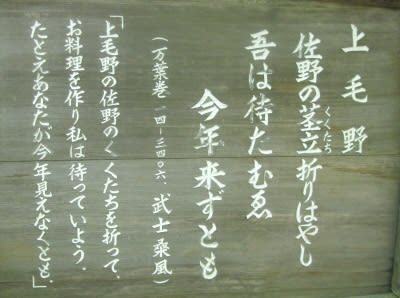 上毛野
佐野の茎立折りはやし
くくたち
吾は待たむゑ
今年来ずとも
（万葉巻一四ー三四〇六、武士桑風）
「上毛野の佐野のくくたちを折って、
お料理を作り私は待っていよう．
たとえあなたが今年見えなくとも」．